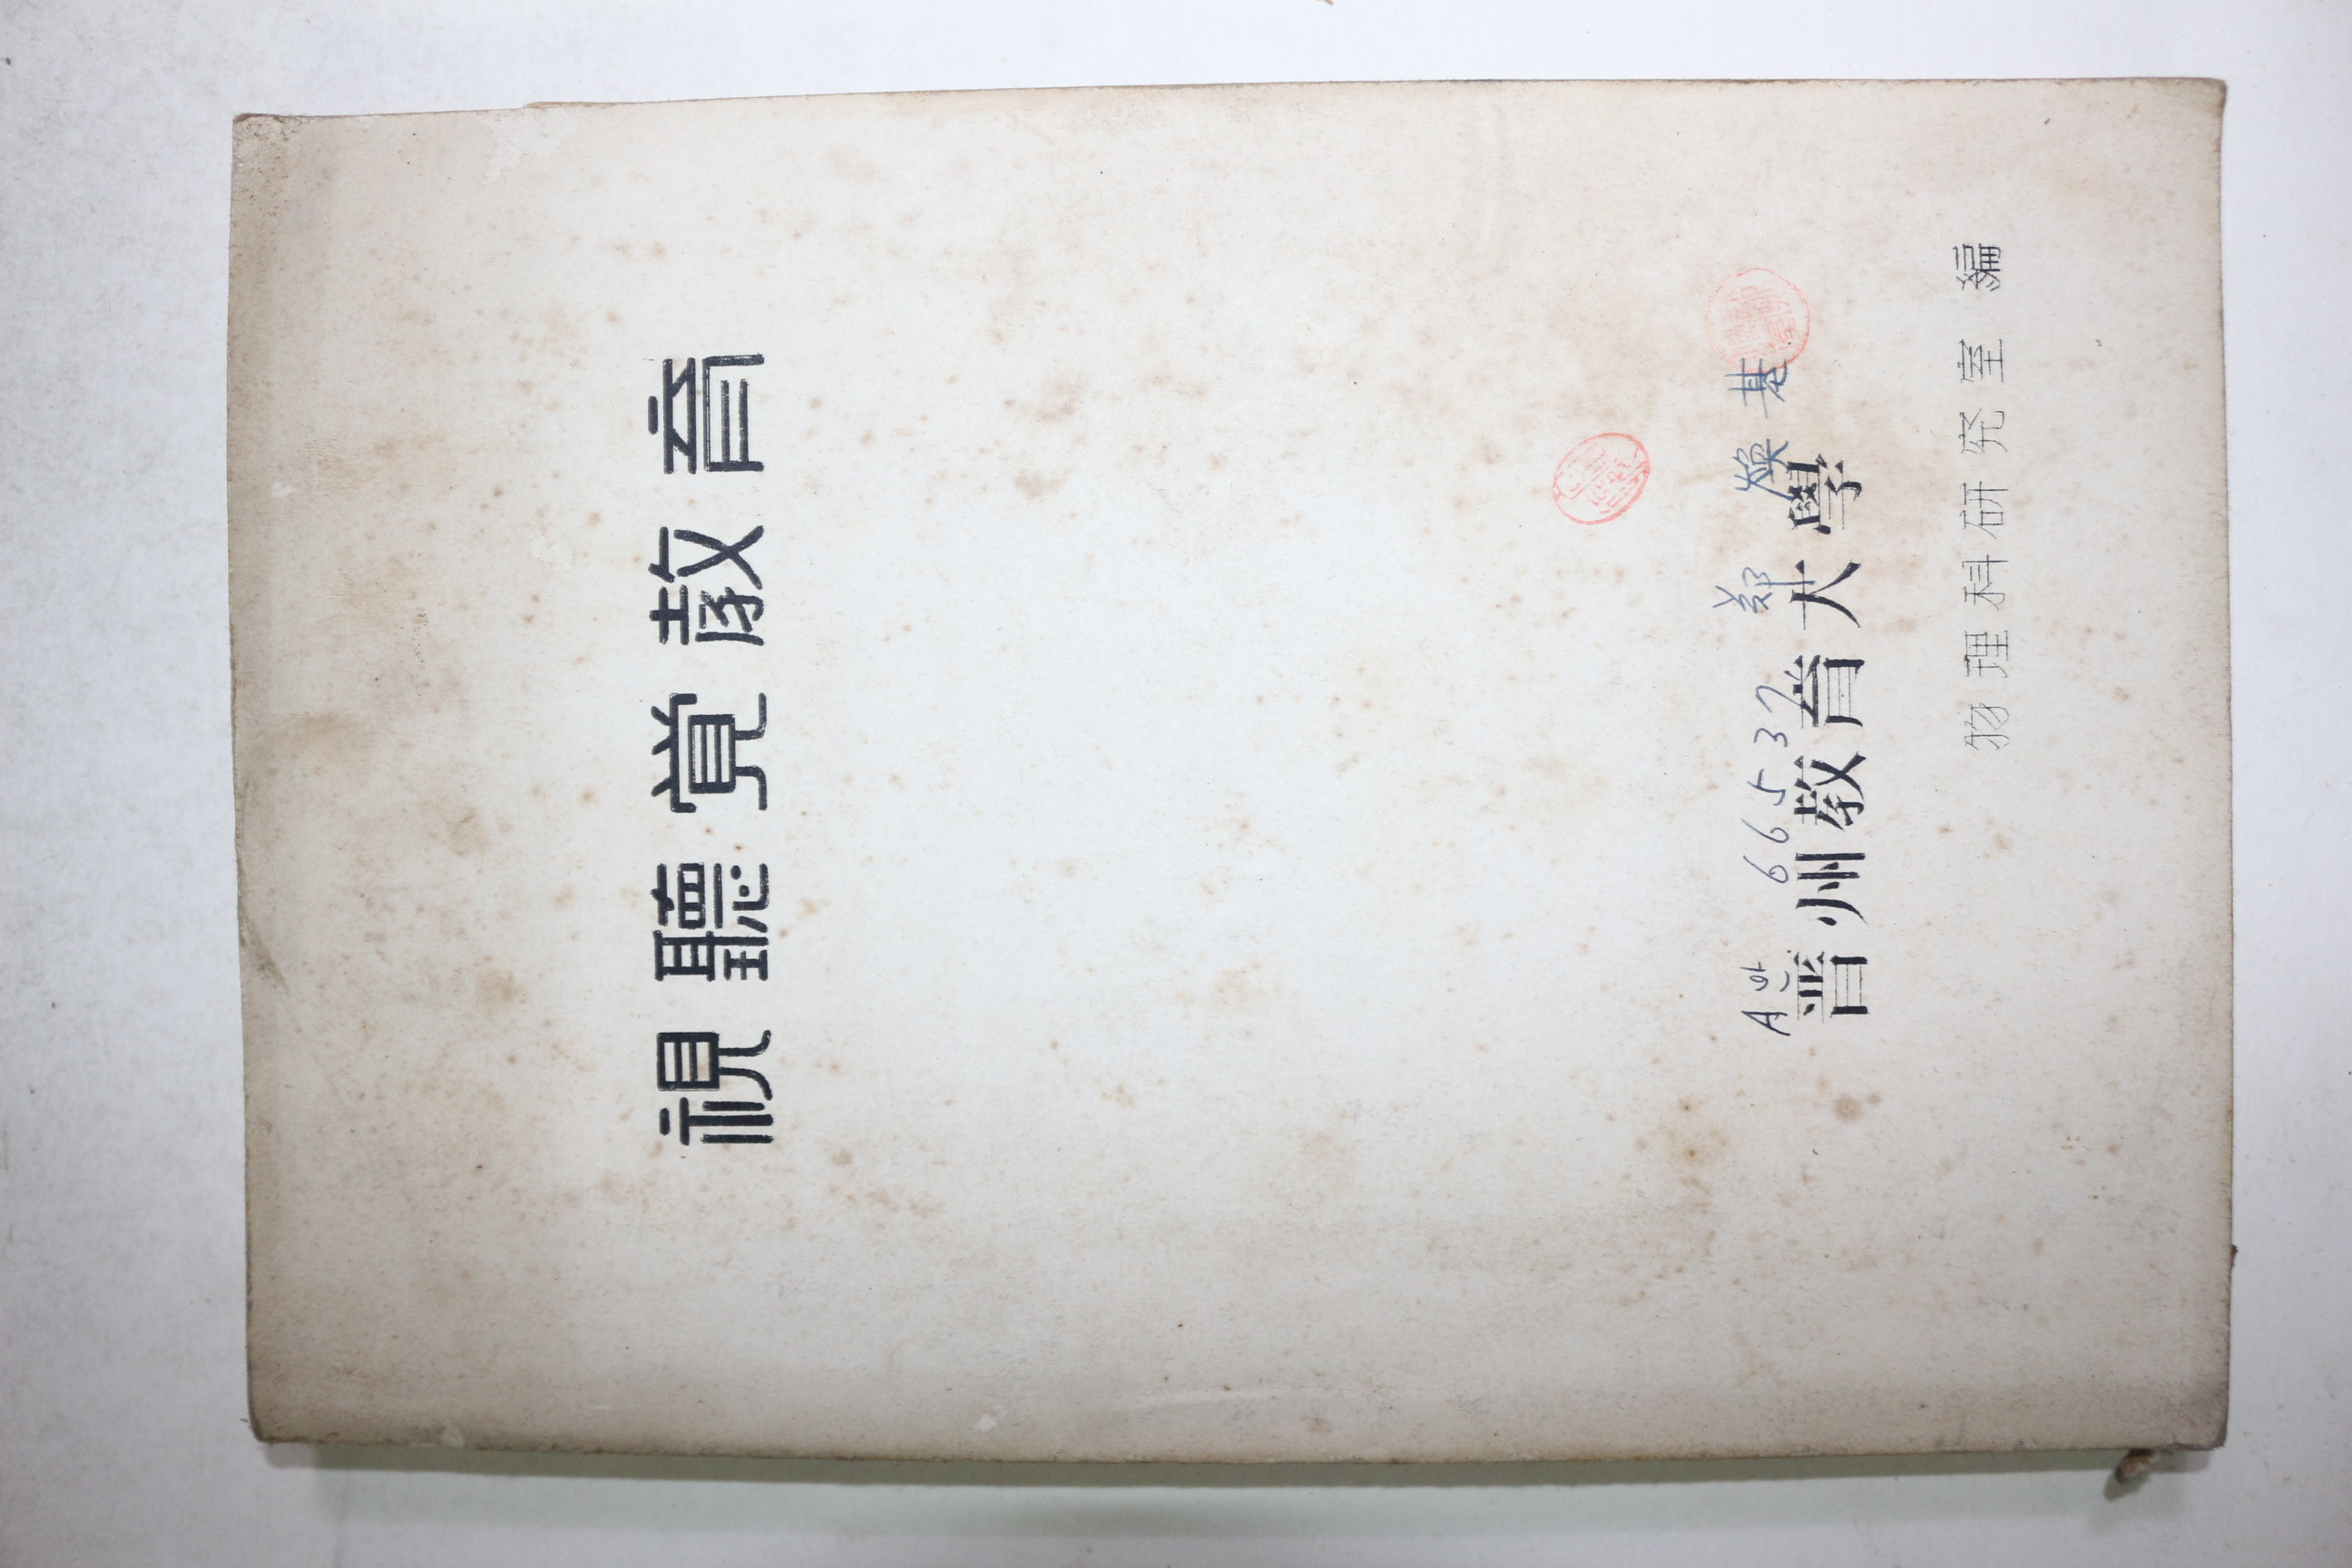 視聽覚教育
A반 66537 鄭 煥基
晋州教育大學
物理科研究室 編